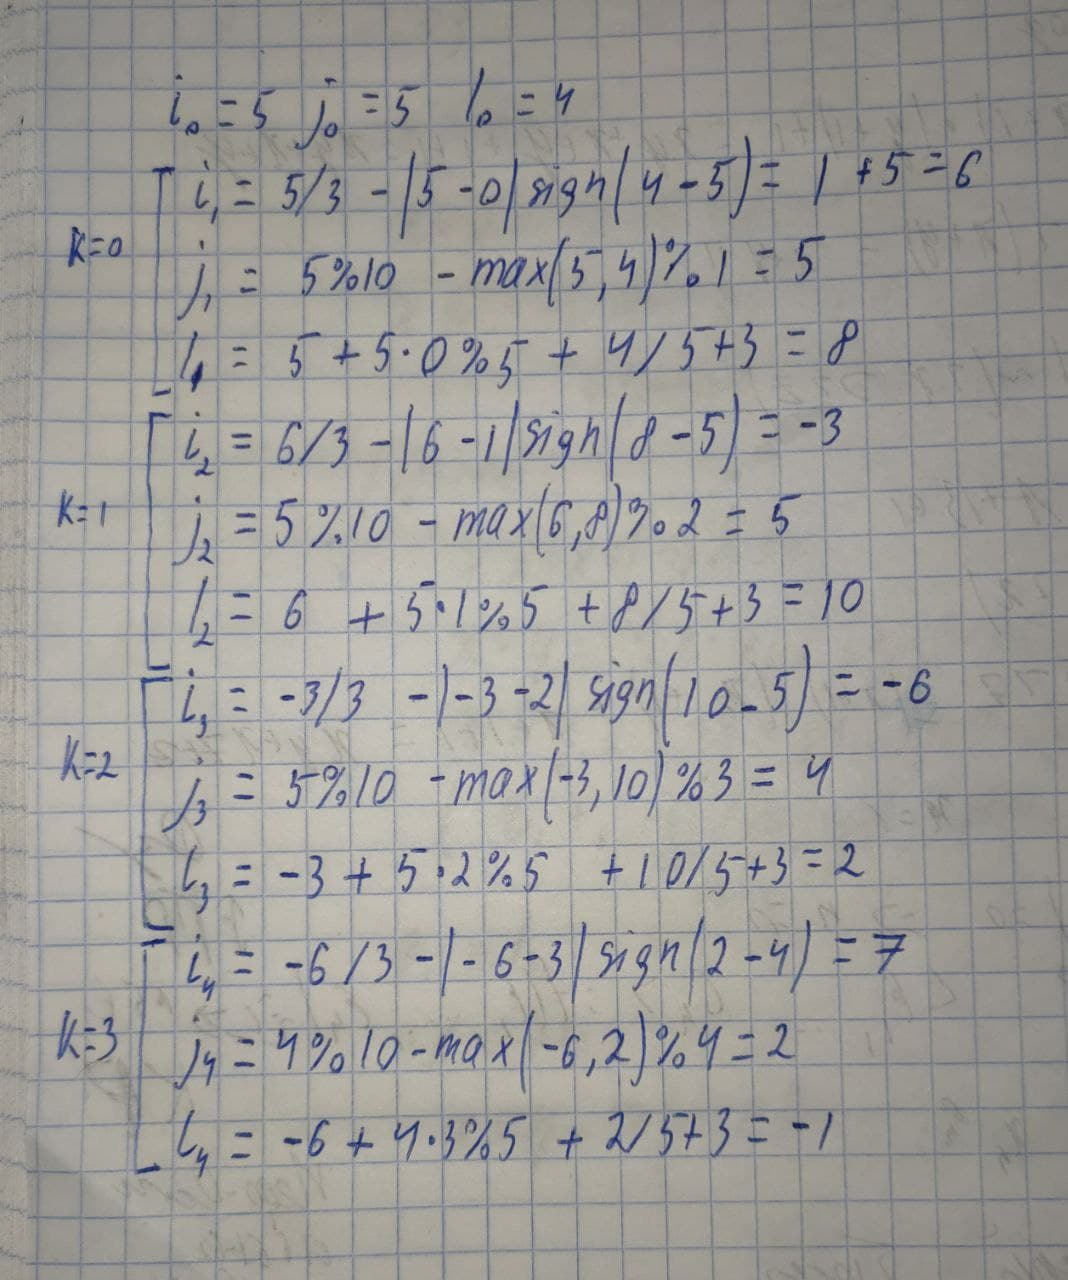 i₀ = 5 j₀ = 5 l₀ = 4
K=0
i₁ = 5/3 - |5 - 0| sign(4 - 5) = 1 + 5 = 6
j₁ = 5%10 - max(5,4)%1 = 5
l₁ = 5 + 5·0%5 + 4/5+3 = 8
K=1
i₂ = 6/3 - |6 - 1| sign(8 - 5) = -3
j₂ = 5%10 - max(6,8)%2 = 5
l₂ = 6 + 5·1%5 + 8/5+3 = 10
K=2
i₃ = -3/3 - |-3 - 2| sign(10 - 5) = -6
j₃ = 5%10 - max(-3,10)%3 = 4
l₃ = -3 + 5·2%5 + 10/5+3 = 2
K=3
i₄ = -6/3 - |-6 - 3| sign(2 - 4) = 7
j₄ = 4%10 - max(-6,2)%4 = 2
l₄ = -6 + 4·3%5 + 2/5+3 = -1